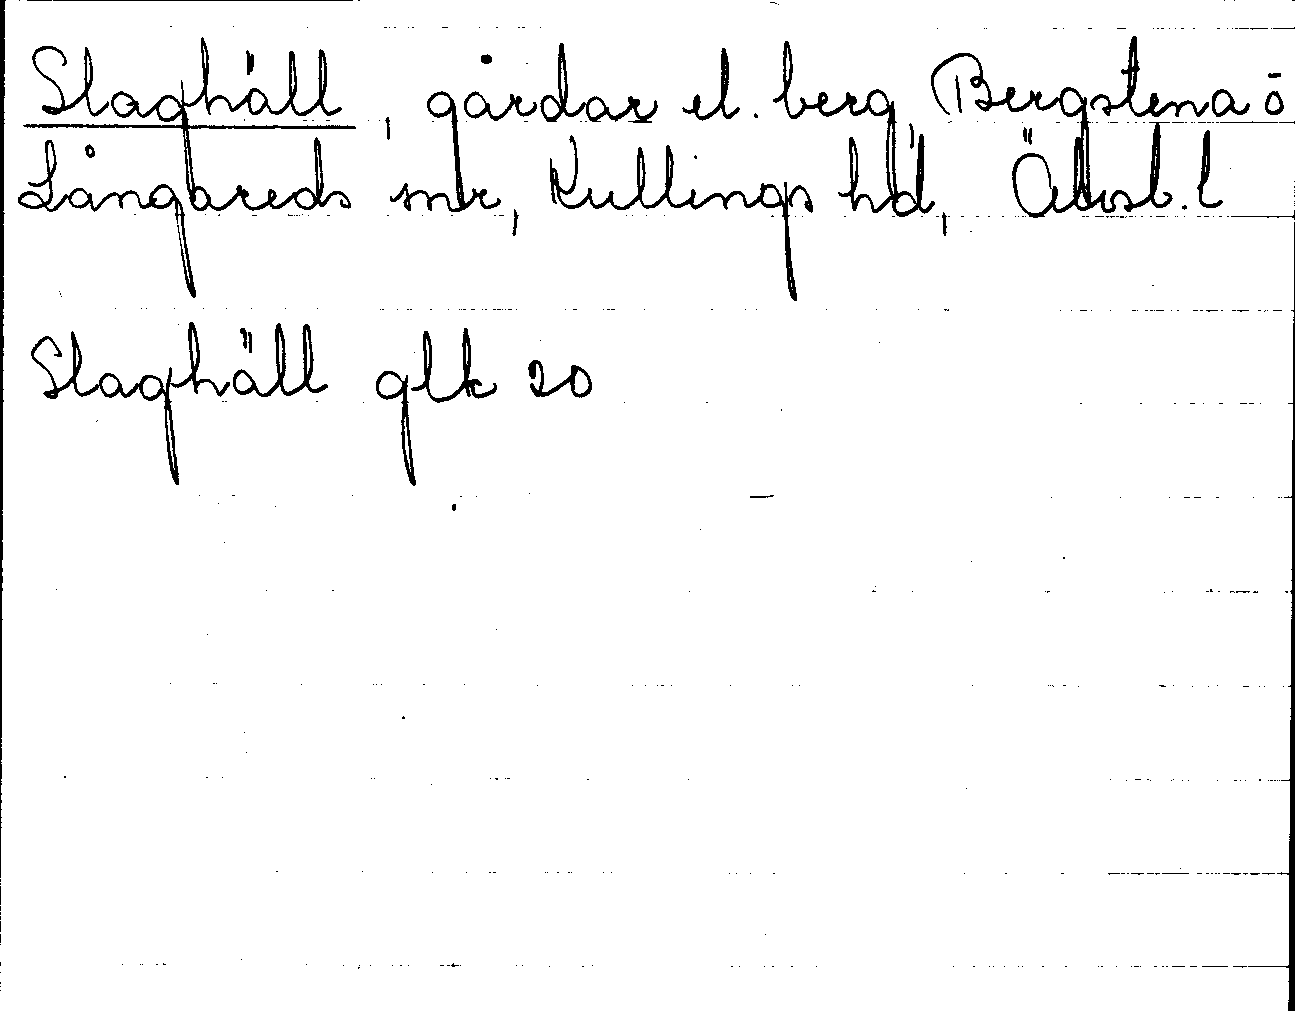 Slaghäll, gårdar el. berg, Bergstena o
Långareds snr, Kullings hd, Älvsb. l
Slaghäll glk 20